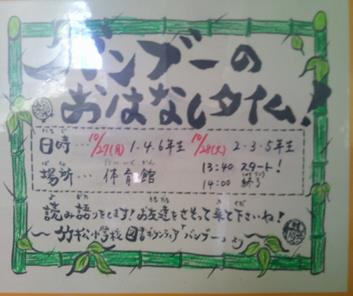 バンブーの
おはなしタイム!
日時…10/27(月) 1・4・6年生 10/28(火) 2・3・5年生
場所…体育館 13:40 スタート!
14:00 終了
読み語りをします!お友達をさそって来て下さいね!
〜竹松小学校 図書ボランティア バンブーより〜